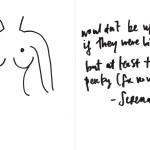 wouldn't be up
if they were bi
but at least t
perky (for now
- Serena